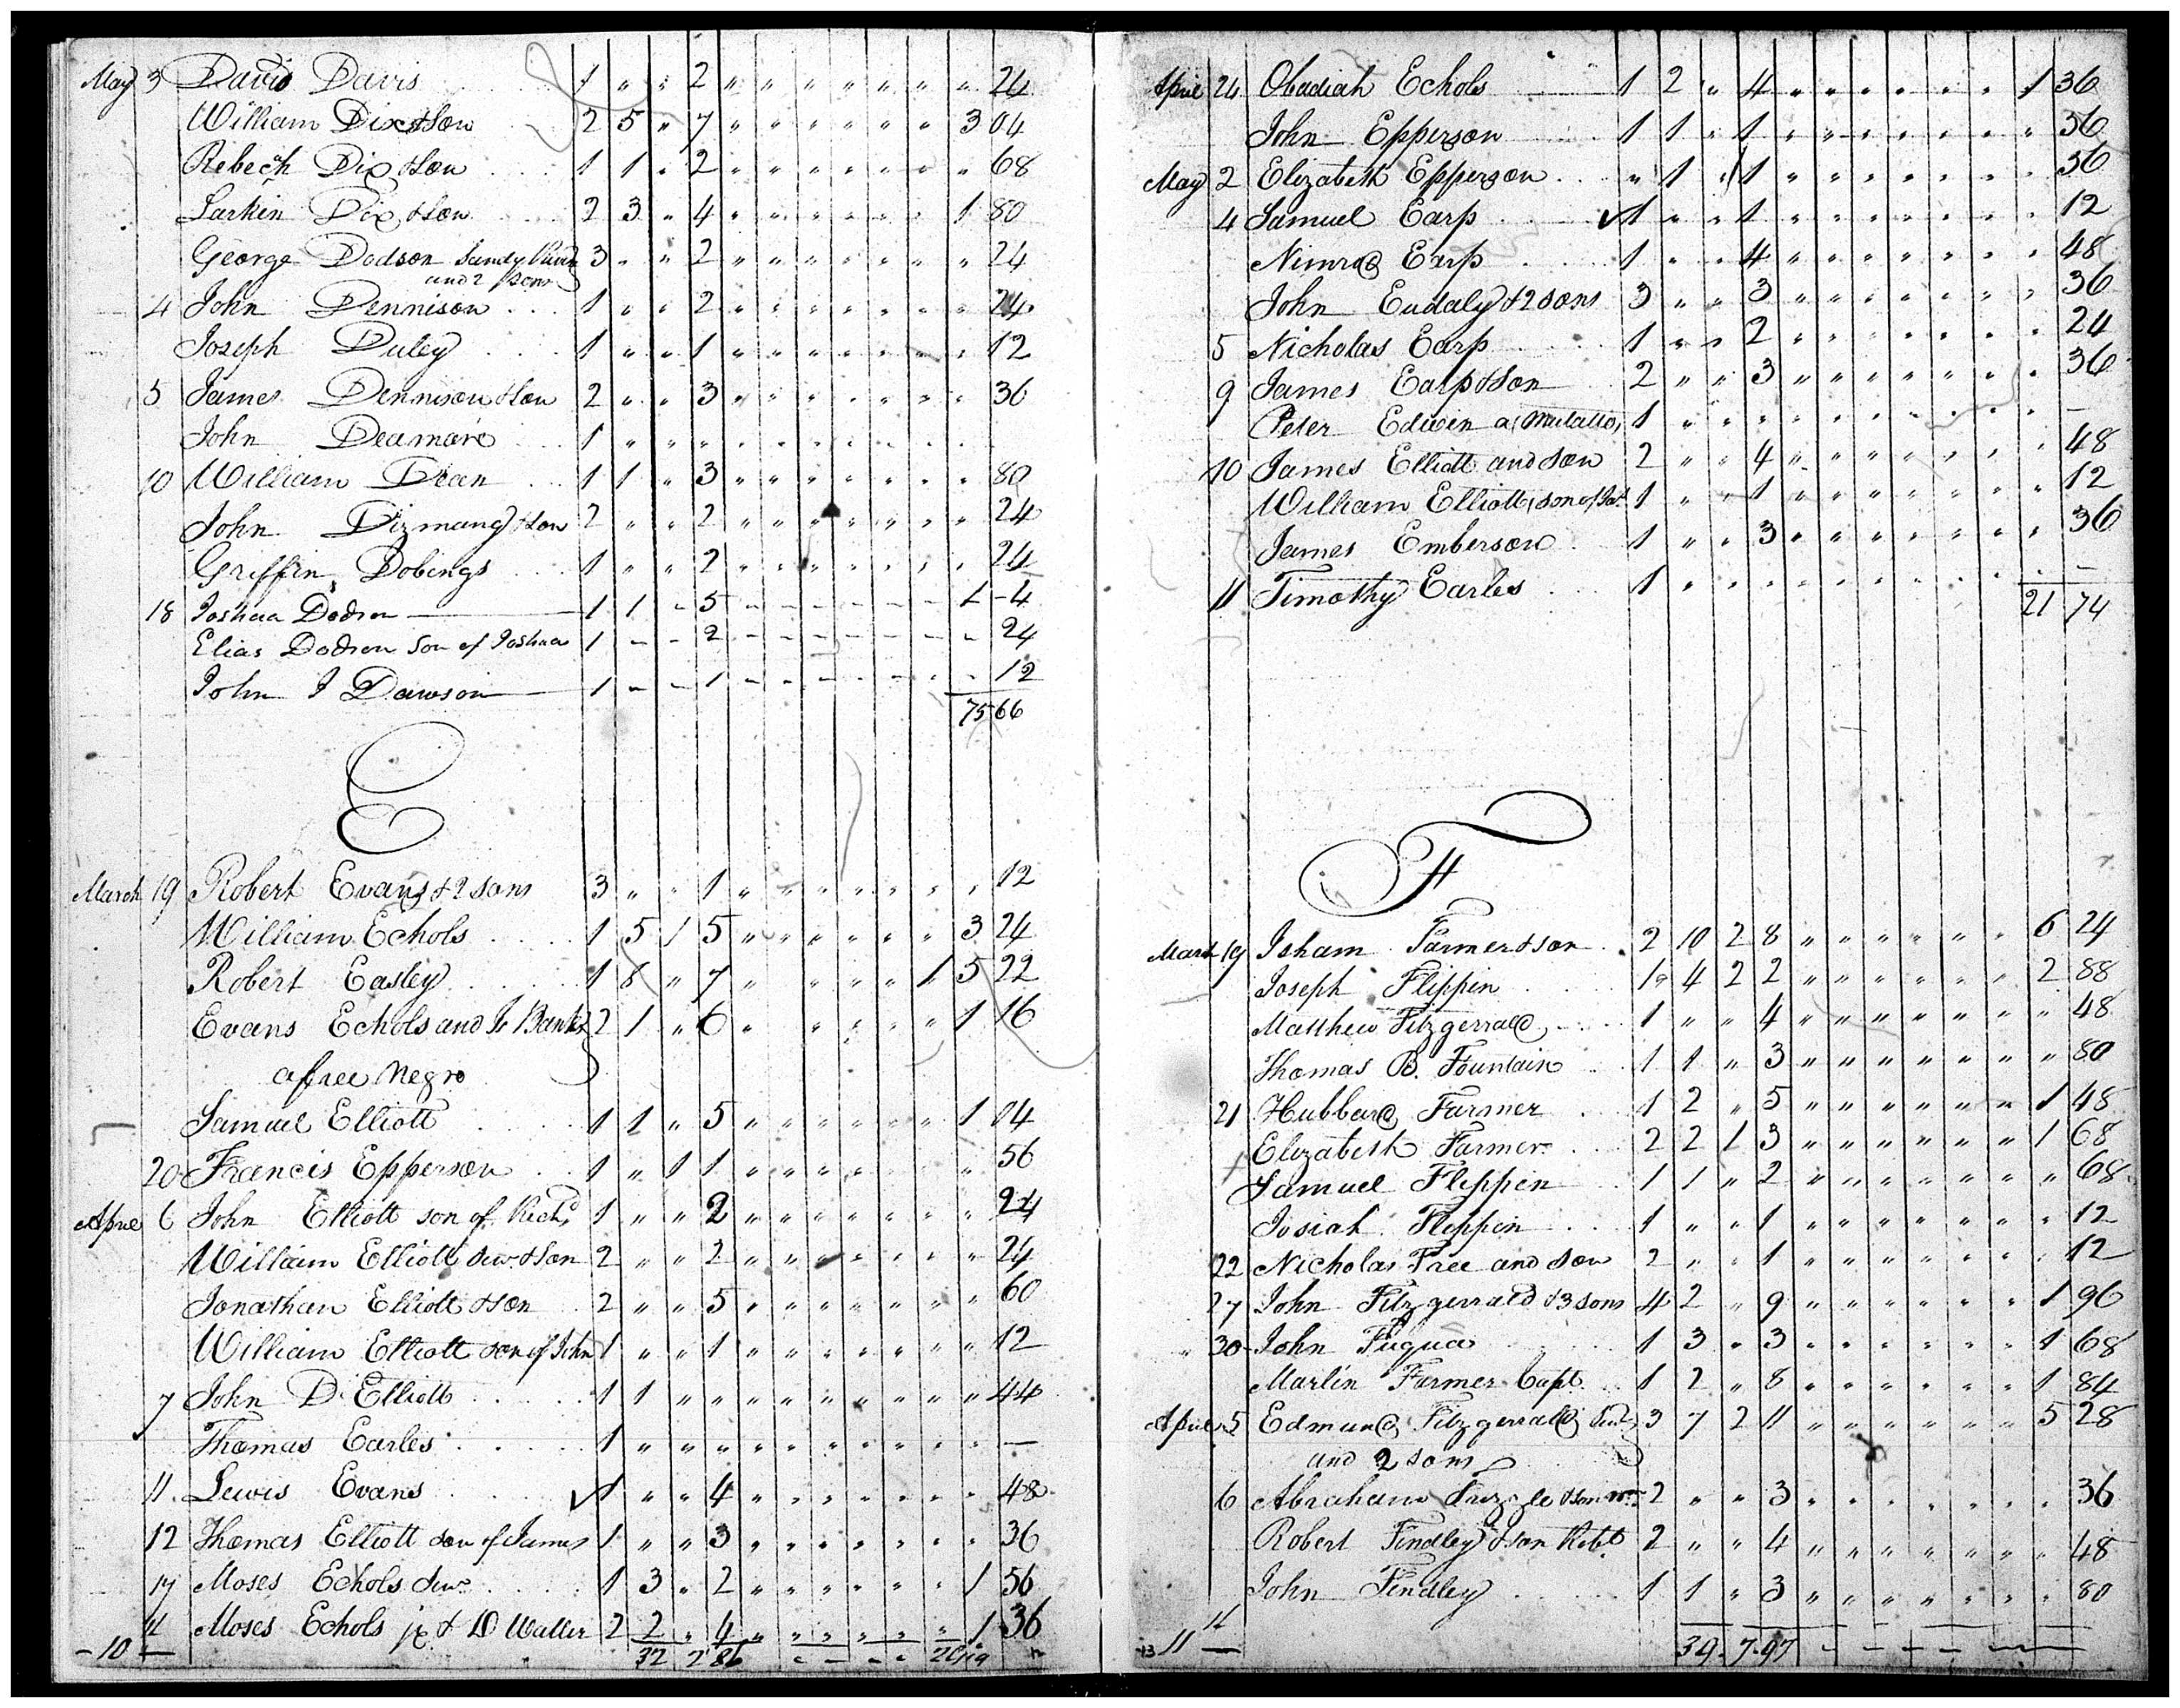 May 3 David Davis 1 " " 2 " " " " " " " 24
William Dix & Son 2 5 " 7 " " " " " " 3 04
Rebech Dix & Son 1 1 " 2 " " " " " " " 68
Larkin Dix & Son 2 3 " 4 " " " " " " 1 80
George Dodson Sandy River 3 " " 2 " " " " " " " 24
and 2 sons
4 John Dennison 1 " " 2 " " " " " " " 24
Joseph Duley 1 " " 1 " " " " " " " 12
5 James Dennison & Son 2 " " 3 " " " " " " " 36
John Deamare 1 " " " " " " " " "
10 William Dean 1 1 " 3 " " " " " " " 80
John Dizmang & Son 2 " " 2 " " " " " " " 24
Griffin Dobings 1 " " 2 " " " " " " " 24
18 Joshua Dodson 1 1 - 5 - - - - - - 1 - 4
Elias Dodson son of Joshua 1 - - 2 - - - - - - - 24
John J Dawson 1 - - 1 - - - - - - - 12
75 66
E
March 19 Robert Evans & 2 sons 3 " " 1 " " " " " " " 12
William Echols 1 5 1 5 " " " " " " 3 24
Robert Easley 1 8 " 7 " " " " 1 5 22
Evans Echols and Js Banks 2 1 " 6 " " " " " 1 16
a free Negro
Samuel Elliott 1 1 " 5 " " " " " " 1 04
20 Francis Epperson 1 " 1 1 " " " " " " 56
Aprie 6 John Elliott son of Richd 1 " " 2 " " " " " " " 24
William Elliott Senr & Son 2 " " 2 " " " " " " " 24
Jonathan Elliott & son 2 " " 5 " " " " " " " 60
William Elliott son of John 1 " " 1 " " " " " " " 12
7 John D Elliott 1 1 " " " " " " " " " 44
Thomas Earles 1 " " " " " " " " " " —
11 Lewis Evans ✓ 1 " " 4 " " " " " " " 48
12 Thomas Elliott son of James 1 " " 3 " " " " " " " 36
17 Moses Echols Senr 1 3 " 2 " " " " " " 1 56
Moses Echols jr & D Waller 2 2 " 4 " " " " " " 1 36
- 10 — 32 2 86
Aprie 24 Obadiah Echols 1 2 " 4 " " " " " " 1 36
John Epperson 1 1 " 1 " " " " " " " 56
May 2 Elizabeth Epperson " 1 " 1 " " " " " " " 56
4 Samuel Earp ✓ 1 " " 1 " " " " " " " 12
Nimrod Earp 1 " " 4 " " " " " " " 48
John Eudaly & 2 sons 3 " " 3 " " " " " " " 36
5 Nicholas Earp 1 " " 2 " " " " " " " 24
9 James Earp & Son 2 " " 3 " " " " " " " 36
Peter Edwin a Mulatto, 1 " " " " " " " " " " —
10 James Elliott and son 2 " " 4 " " " " " " " 48
William Elliott, son of Jas. 1 " " 1 " " " " " " " 12
James Emberson 1 " " 3 " " " " " " " 36
11 Timothy Earles 1 " " " " " " " " " " —
21 74
F
March 19 Isham Farmer & son 2 10 2 8 " " " " " " 6 24
Joseph Flippin 1 4 2 2 " " " " " " 2 88
Matthew Fitzgerrald 1 " " 4 " " " " " " " 48
Thomas B. Fountain 1 1 " 3 " " " " " " " 80
21 Hubbard Farmer 1 2 " 5 " " " " " " 1 48
Elizabeth Farmer 2 2 1 3 " " " " " " 1 68
Samuel Flippin 1 1 " 2 " " " " " " " 68
Josiah Flippin 1 " " 1 " " " " " " " 12
22 Nicholas Free and son 2 " " 1 " " " " " " " 12
27 John Fitzgerrald & 3 sons 4 2 " 9 " " " " " " 1 96
" 30 John Fuqua 1 3 " 3 " " " " " " 1 68
Marlin Farmer Capt. 1 2 " 8 " " " " " " 1 84
Aprie 5 Edmund Fitzgerrald Senr 3 7 2 11 " " " " " " 5 28
and 2 sons
6 Abraham Frizzle & son Wm 2 " " 3 " " " " " " " 36
Robert Findley & son Robt. 2 " " 4 " " " " " " " 48
John Findley 1 1 " 3 " " " " " " " 80
13 11 — 39 . 7 . 97 - - - - —